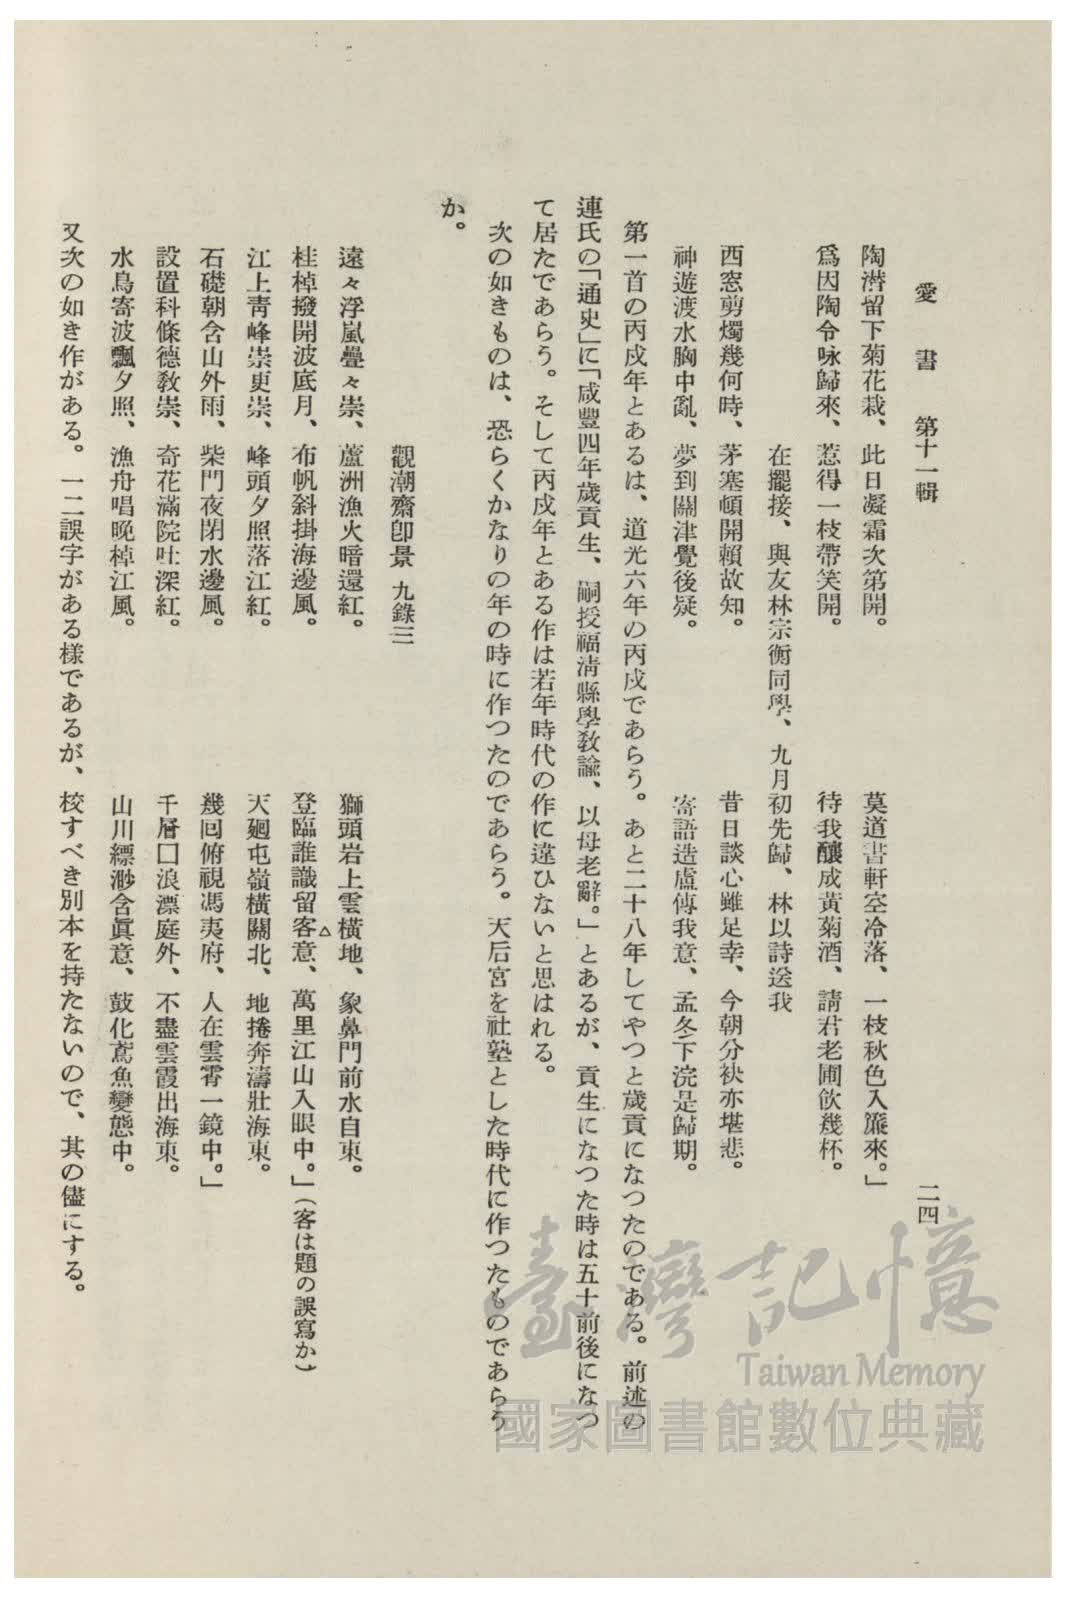 愛書 第十一輯
二四
陶潛留下菊花栽、此日凝霜次第開。 莫道書軒空冷落、一枝秋色入簾來。」
爲因陶令咏歸來、惹得一枝帶笑開。 待我釀成黃菊酒、請君老圃飲幾杯。
在擺接、與友林宗衡同學、九月初先歸、林以詩送我
西窓剪燭幾何時、茅塞頓開賴故知。 昔日談心雖足幸、今朝分袂亦堪悲。
神遊渡水胸中亂、夢到關津覺後疑。 寄語造盧傳我意、孟冬下浣是歸期。
第一首の丙戍年とあるは、道光六年の丙戍であらう。あと二十八年してやつと歲貢になつたのである。前述の
連氏の「通史」に「咸豐四年歲貢生、嗣授福淸縣學敎諭、以母老辭。」とあるが、貢生になつた時は五十前後になつ
て居たであらう。そして丙戍年とある作は若年時代の作に違ひないと思はれる。
次の如きものは、恐らくかなりの年の時に作つたのであらう。天后宮を社塾とした時代に作つたものであらう
か。
觀潮齋卽景 九錄三
遠々浮嵐疊々崇、蘆洲漁火暗還紅。 獅頭岩上雲橫地、象鼻門前水自東。
桂棹撥開波底月、布帆斜掛海邊風。 登臨誰識留客意、萬里江山入眼中。」(客は題の誤寫か)
△
江上靑峰崇更崇、峰頭夕照落江紅。 天廻屯嶺橫關北、地捲奔濤壯海東。
石礎朝含山外雨、柴門夜閉水邊風。 幾囘俯視馮夷府、人在雲霄一鏡中。」
設置科條德敎崇、奇花滿院吐深紅。 千層囗浪漂庭外、不盡雲霞出海東。
水鳥寄波飄夕照、漁舟唱晚棹江風。 山川縹渺含眞意、鼓化鳶魚變態中。
又次の如き作がある。一二誤字がある樣であるが、校すべき別本を持たないので、其の儘にする。
臺灣記憶
Taiwan Memory
國家圖書館數位典藏